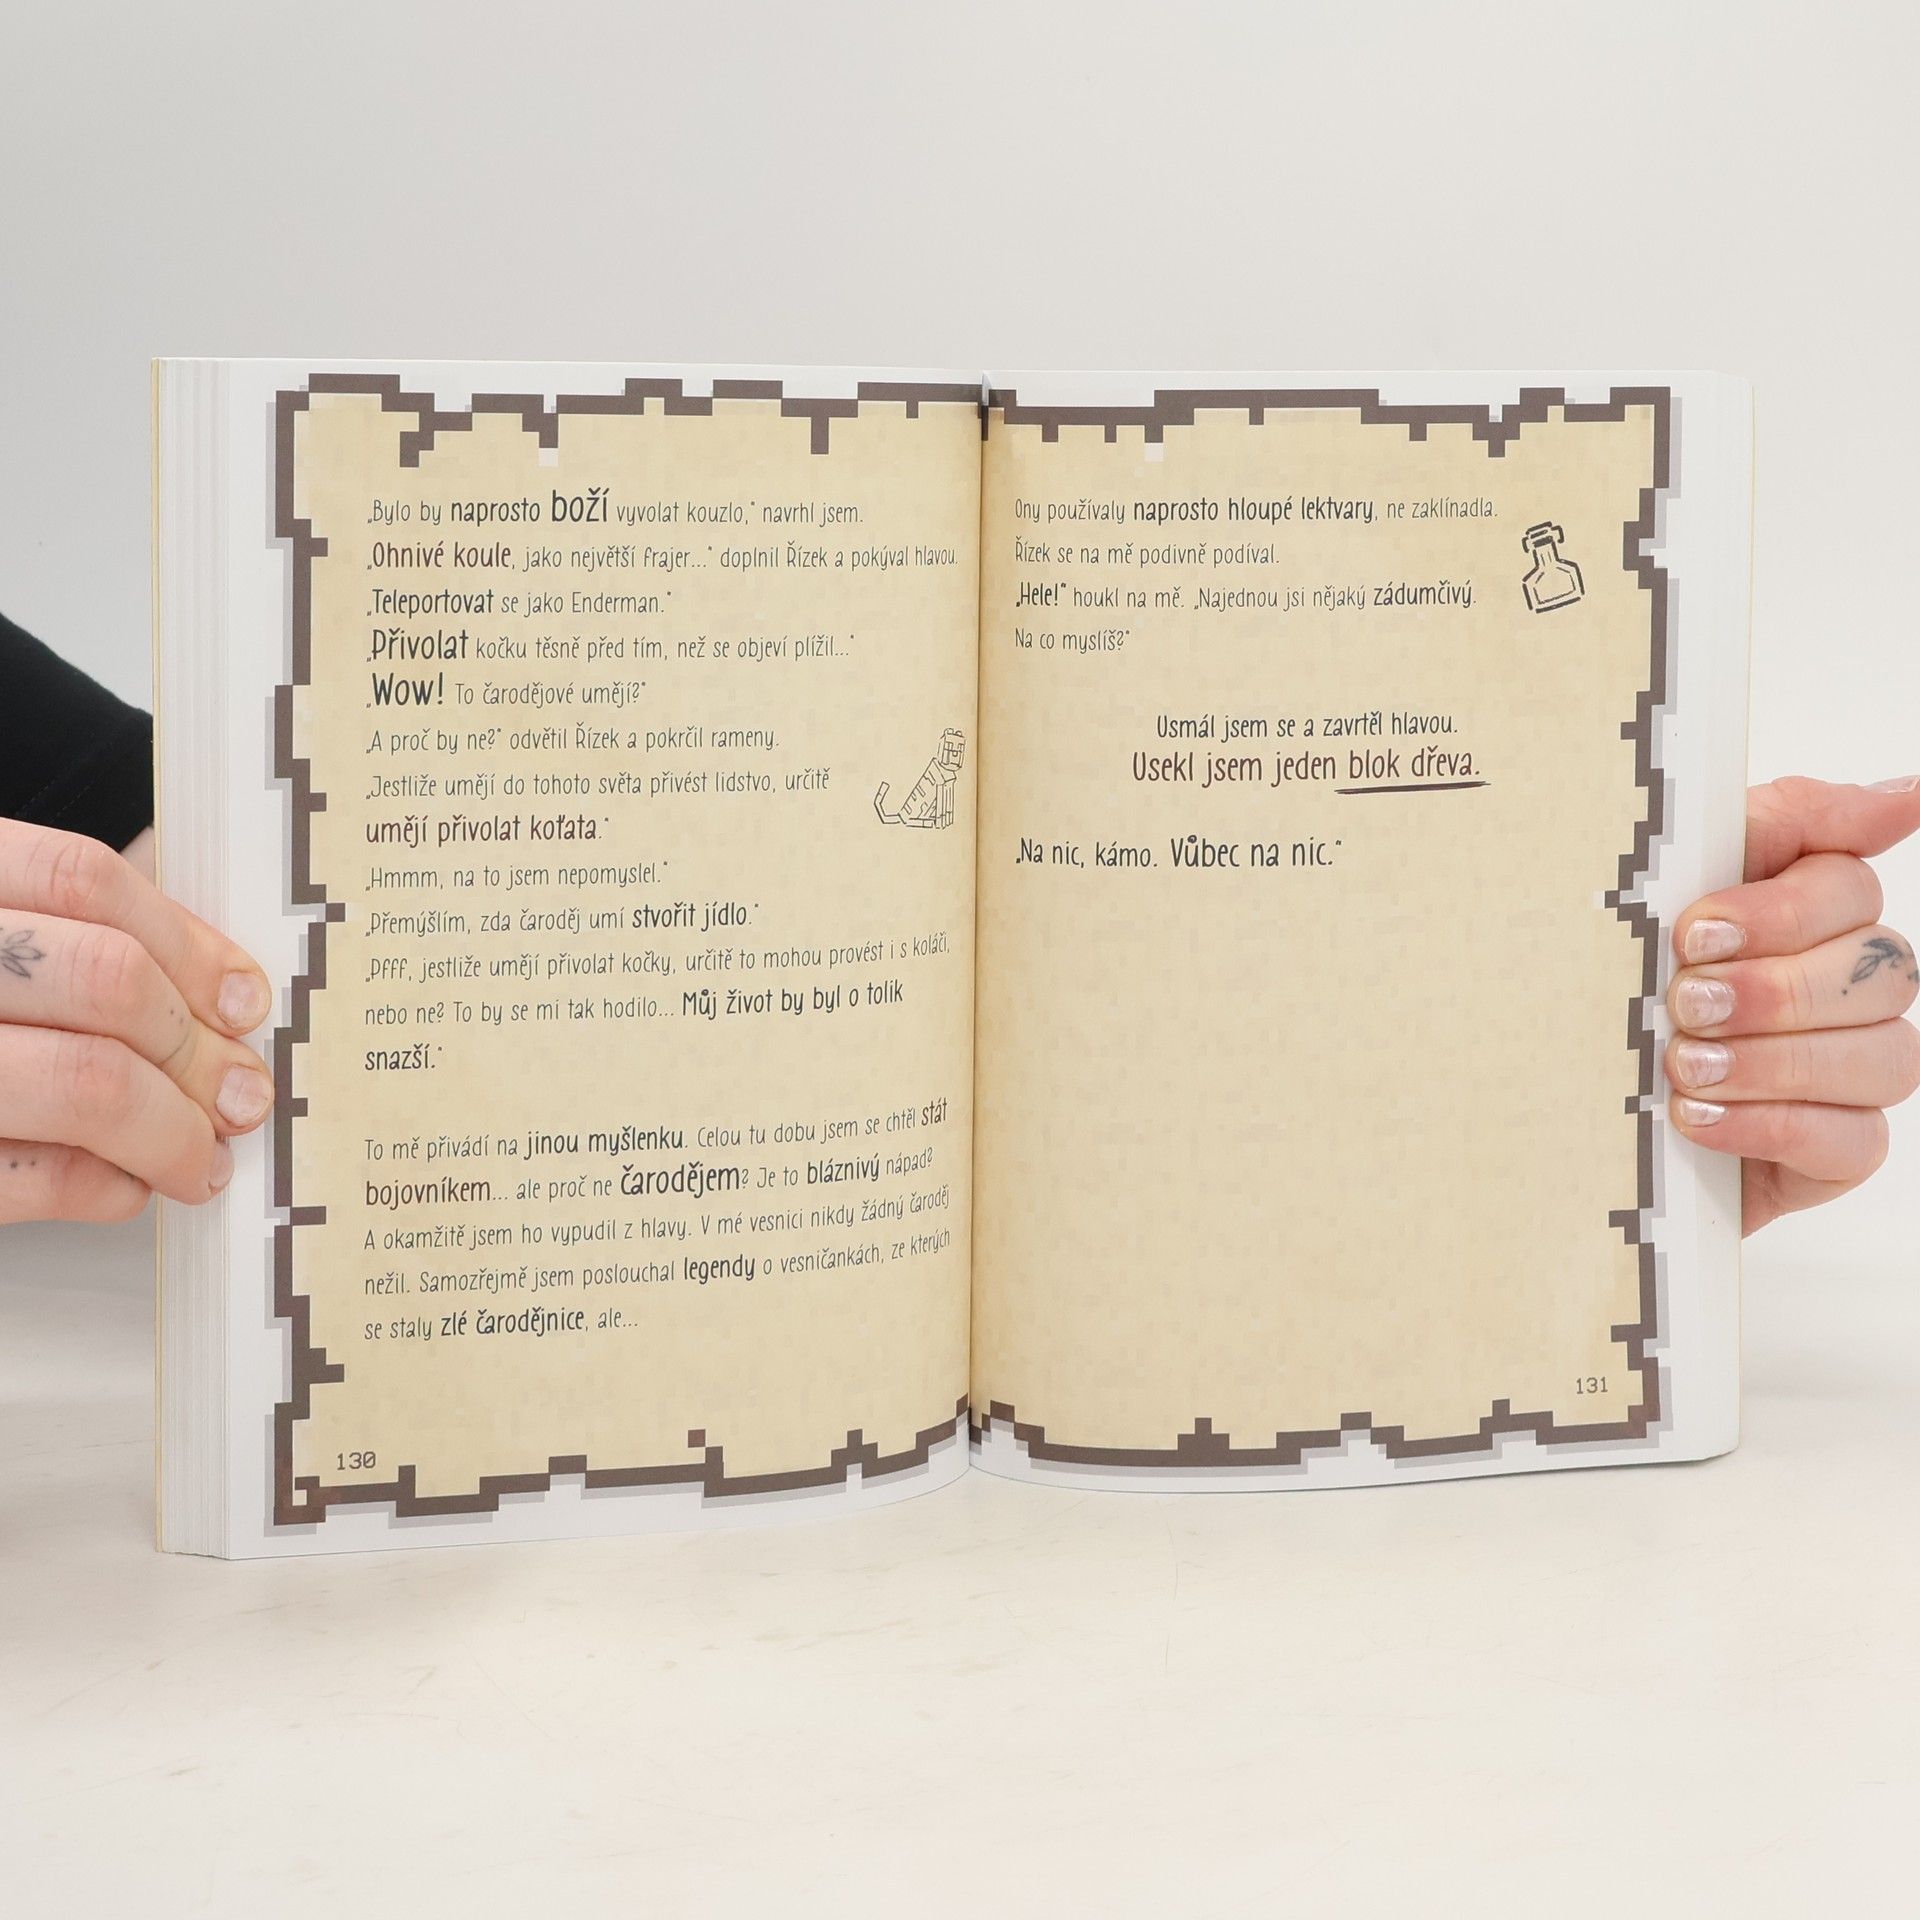 „Bylo by naprosto boží vyvolat kouzlo,“ navrhl jsem.
„Ohnivé koule, jako největší frajer...“ doplnil Řízek a pokýval hlavou.
„Teleportovat se jako Enderman.“
„Přivolat kočku těsně před tím, než se objeví plížil...“
„Wow! To čarodějové umějí?“
„A proč by ne?“ odvětil Řízek a pokrčil rameny.
„Jestliže umějí do tohoto světa přivést lidstvo, určitě
umějí přivolat koťata.“
„Hmmm, na to jsem nepomyslel.“
„Přemýšlím, zda čaroděj umí stvořit jídlo.“
„Pfff, jestliže umějí přivolat kočky, určitě to mohou provést i s koláči,
nebo ne? To by se mi tak hodilo... Můj život by byl o tolik
snazší.“
To mě přivádí na jinou myšlenku. Celou tu dobu jsem se chtěl stát
bojovníkem... ale proč ne čarodějem? Je to bláznivý nápad?
A okamžitě jsem ho vypudil z hlavy. V mé vesnici nikdy žádný čaroděj
nežil. Samozřejmě jsem poslouchal legendy o vesničankách, ze kterých
se staly zlé čarodějnice, ale...
130
Ony používaly naprosto hloupé lektvary, ne zaklínadla.
Řízek se na mě podivně podíval.
„Hele!“ houkl na mě. „Najednou jsi nějaký zádumčivý.
Na co myslíš?“
Usmál jsem se a zavrtěl hlavou.
Usekl jsem jeden blok dřeva.
„Na nic, kámo. Vůbec na nic.“
131